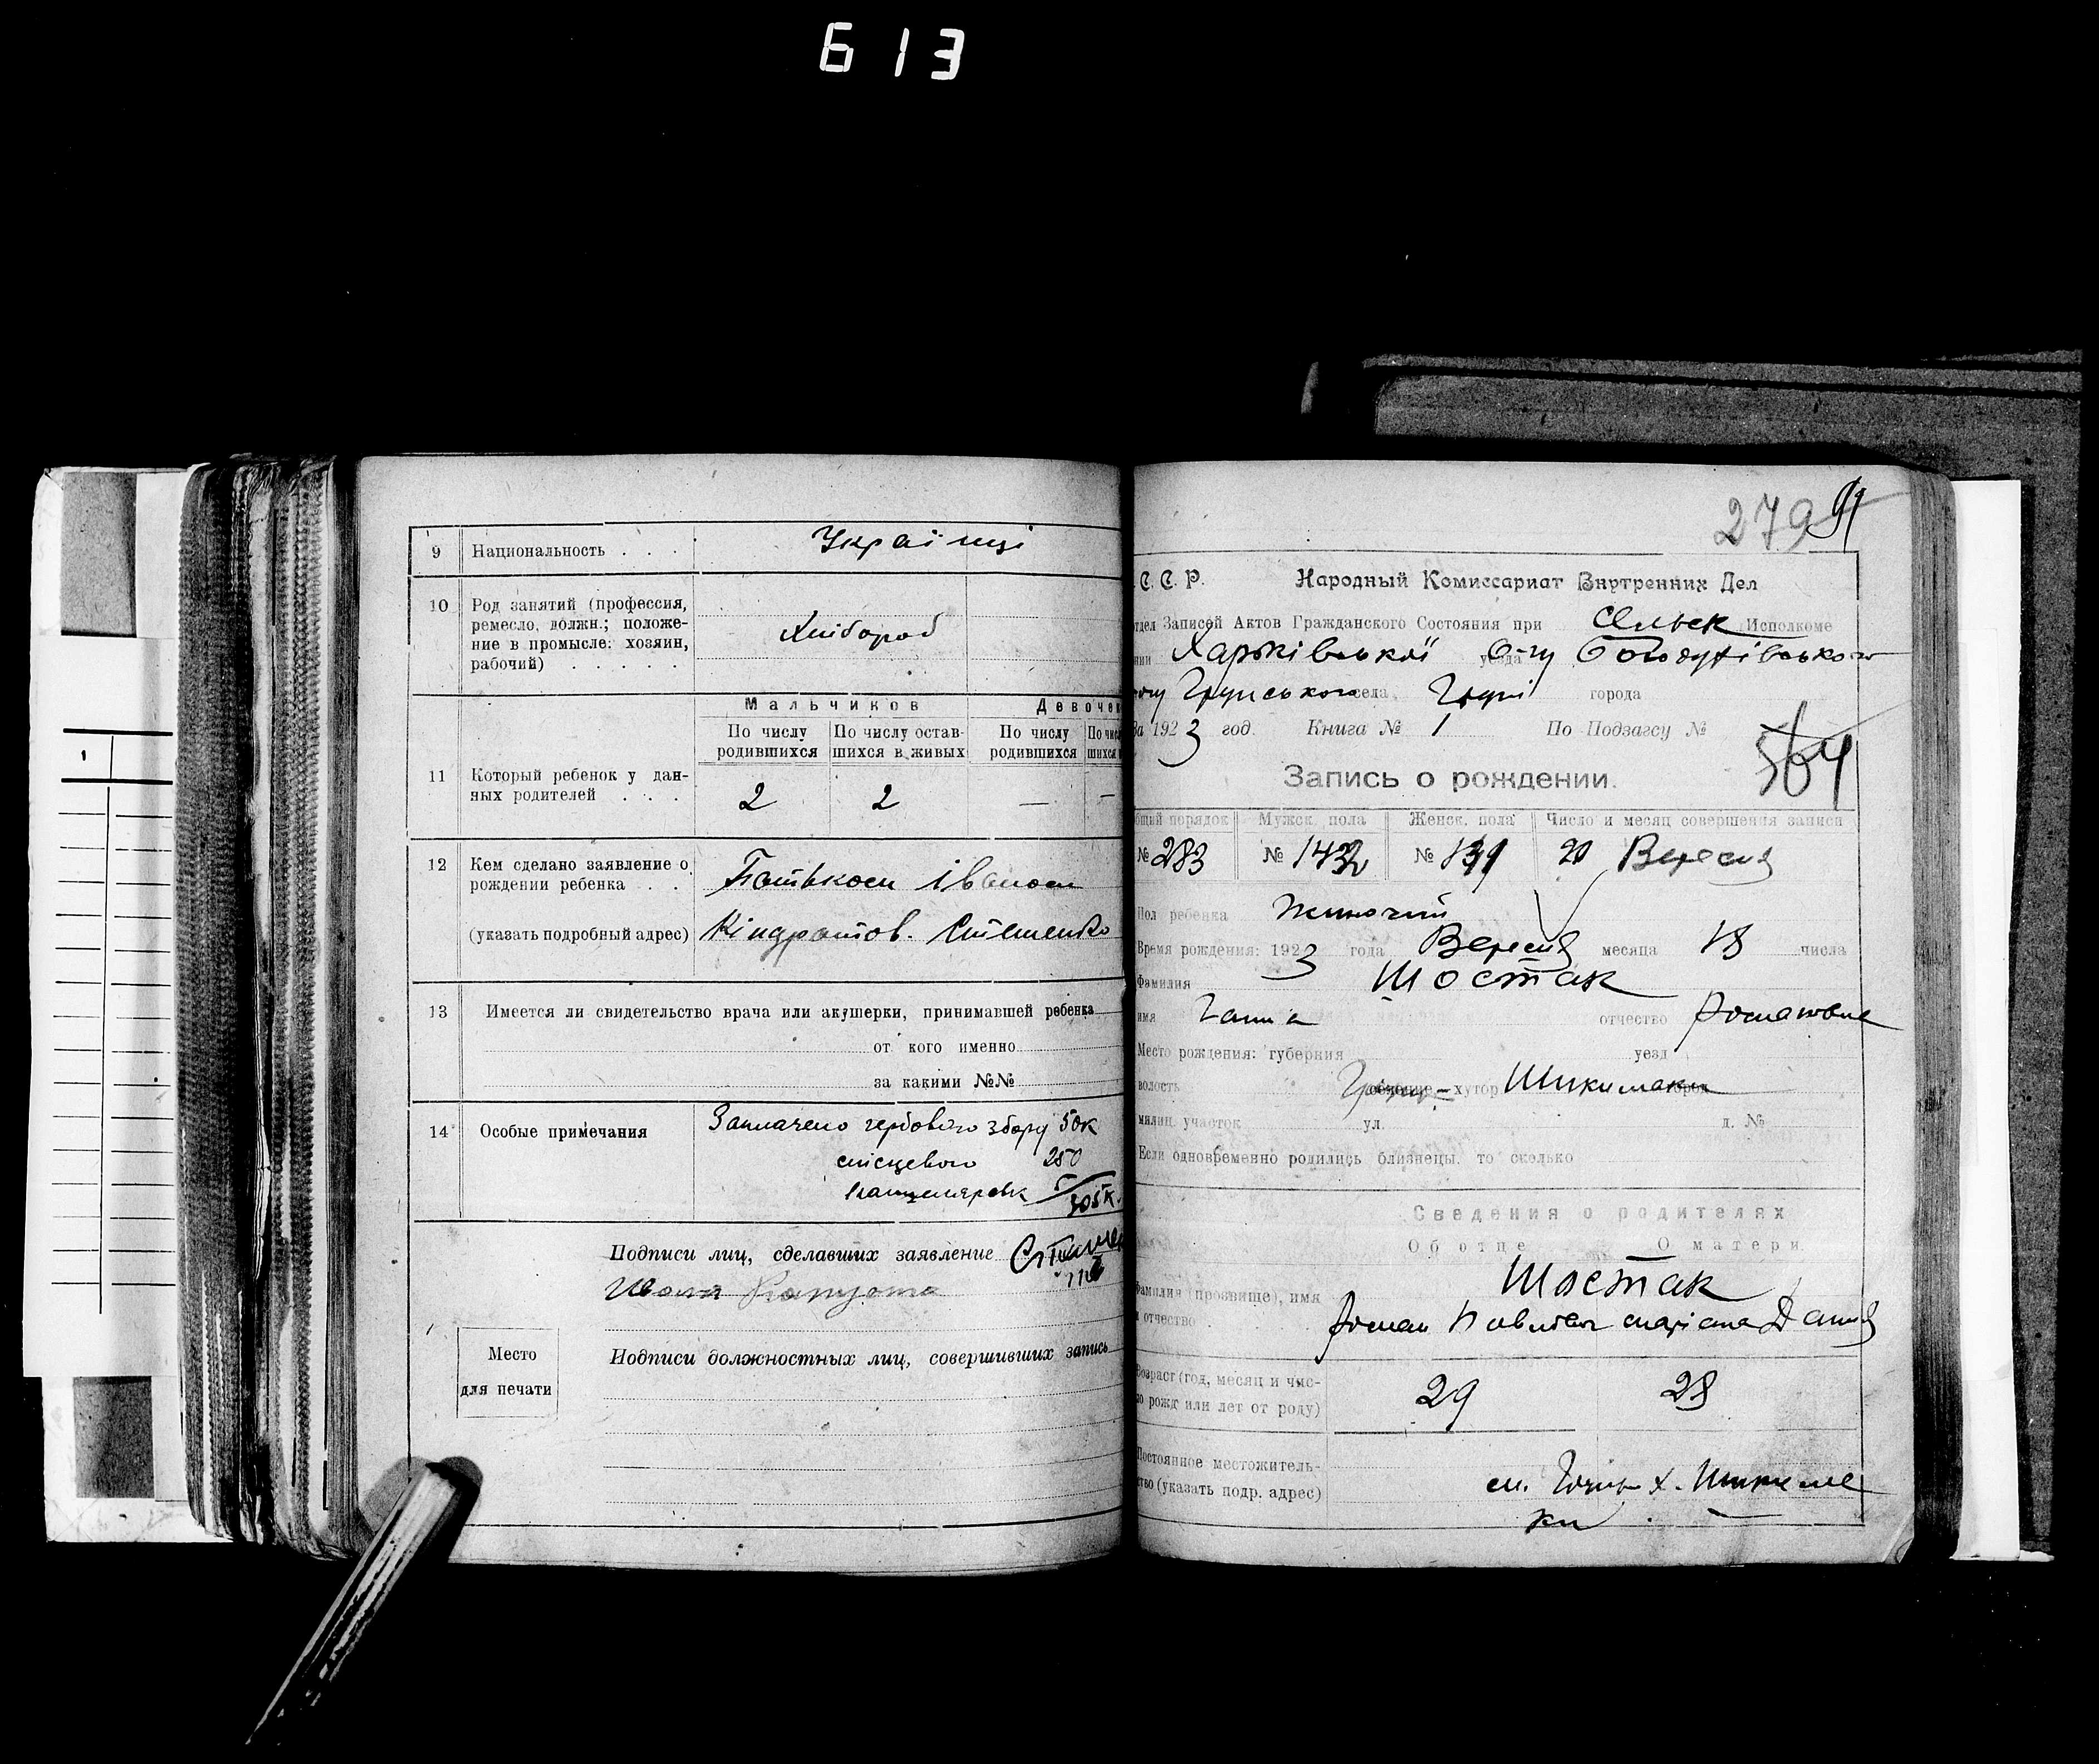 613
9 Национальность . . . Українці
10 Род занятий (профессия,
ремесло, должн.; положе-
ние в промысле: хозяин,
рабочий) . . . . .
Хлібороб
Мальчиков Девочек
По числу родившихся По числу остав-шихся в живых По числу родившихся
11 Который ребенок у дан-
ных родителей . . . 2 2 — —
12 Кем сделано заявление о
рождении ребенка . . Батьком Іваном
(указать подробный адрес) Кіндратов. Стешенко
13 Имеется ли свидетельство врача или акушерки, принимавшей ребенка
от кого именно
за какими №№
14 Особые примечания Заплачено гербового збору 50к
місцевого 250
канцелярськ 5
305к.
Подписи лиц, сделавших заявление
Иван
Место
для печати
Подписи должностных лиц, совершивших запись
279 91
С. С. Р. Народный Комиссариат Внутренних Дел
отдел Записей Актов Гражданского Состояния при Сельвик Исполкоме
Харьківської уезда
села города
за 1923 год. Книга № 1 По Подзагсу №
564
Запись о рождении.
общий порядок Мужск. пола Женск. пола Число и месяц совершения записи
№ 283 № № 20 Вересня
Пол ребенка Жиночий
Время рождения: 1923 года Вересня месяца 18 числа
Фамилия Шостак
имя Ганна отчество Романовна
Место рождения: губерния уезд
волость селение хутор город
милиц. участок ул. д. №
Если одновременно родились близнецы, то сколько
Сведения о родителях
Об отце О матери
Шостак
Фамилия (прозвище), имя
и отчество Роман Павлович
Возраст (год, месяц и чис-
ло рожд. или лет от роду) 29 28
Постоянное местожитель-
ство (указать подр. адрес)